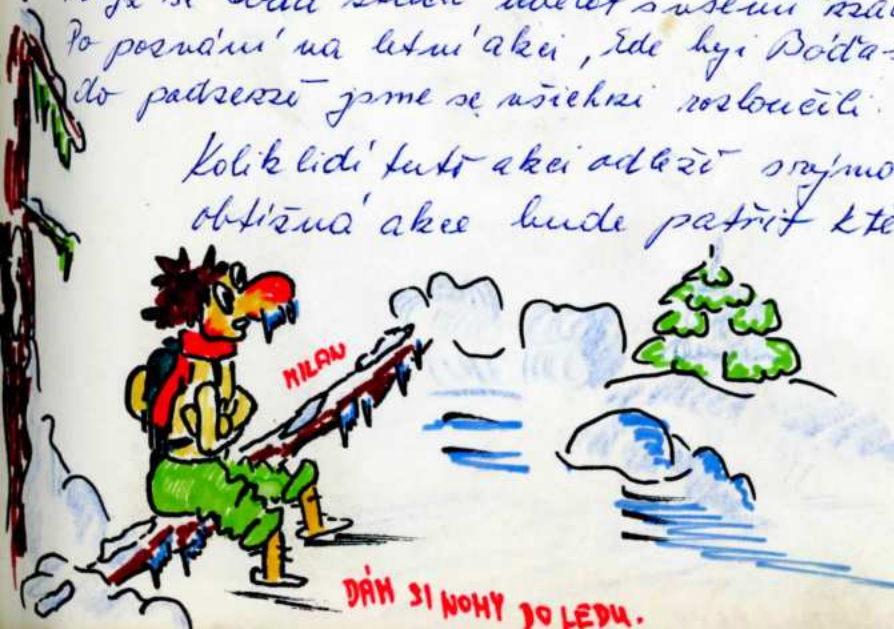 se
Po poznání na letní akci, kde byi Bóďa-
do podzerří jsme se všichni rozloučili.
Kolik lidí tuto akci odleží
obtížná akce bude patřit kte
MILAN
DÁM SI NOHY DO LEDU.